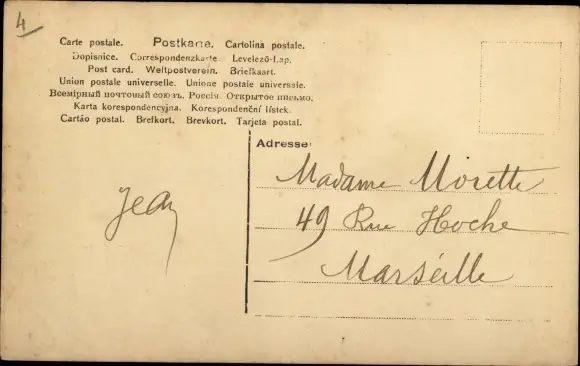 4
Carte postale. Postkarte. Cartolina postale.
Dopisnice. Correspondenzkarte. Levelező-Lap.
Post card. Weltpostverein. Briefkaart.
Union postale universelle. Unione postale universale.
Всемірный почтовый союзъ. Россія. Открытое письмо.
Karta korespondencyjna. Korespondenční lístek.
Cartáo postal. Brefkort. Brevkort. Tarjeta postal.
Adresse:
Madame Morette
49 Rue Hoche
Marséille
Jean